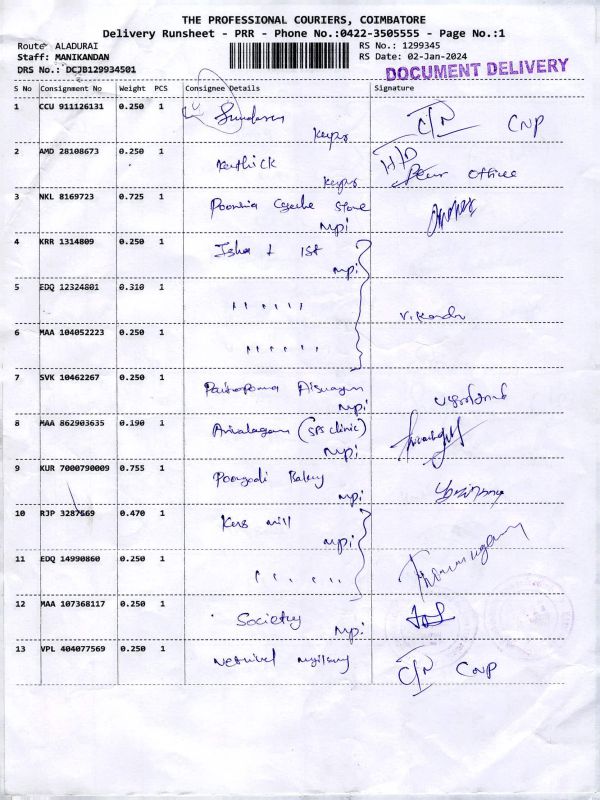 THE PROFESSIONAL COURIERS, COIMBATORE
Delivery Runsheet - PRR - Phone No.:0422-3505555 - Page No.:1
Route ALADURAI RS No.: 1299345
Staff: MANIKANDAN RS Date: 02-Jan-2024
DRS No.: DCJB129934501 DOCUMENT DELIVERY
S No Consignment No Weight PCS Consignee Details Signature
1 CCU 911126131 0.250 1 Sundaram C/N CNP
2 AMD 28108673 0.250 1 Karthick Office
3 NKL 8169723 0.725 1 Store
mpi
4 KRR 1314809 0.250 1 Isha + 1st
mpi
5 EDQ 12324801 0.310 1 " " " " " "
6 MAA 104052223 0.250 1 " " " " " "
7 SVK 10462267 0.250 1
mpi
8 MAA 862903635 0.190 1 Arivalagan (SPS clinic)
mpi
9 KUR 7000790009 0.755 1 Poongodi Bakery
mpi
10 RJP 3287669 0.470 1 mill
mpi
11 EDQ 14990860 0.250 1 " " " " " "
12 MAA 107368117 0.250 1 Society
mpi
13 VPL 404077569 0.250 1 C/N CNP